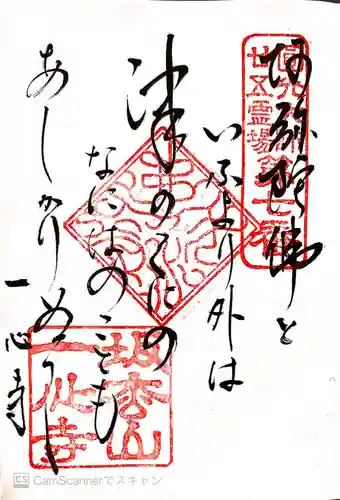 阿弥陀佛と
いふより外は
津の国の
なにはのことも
あしかりぬべし
一心寺
廿五霊場
坂松山
一心寺
CS CamScannerでスキャン